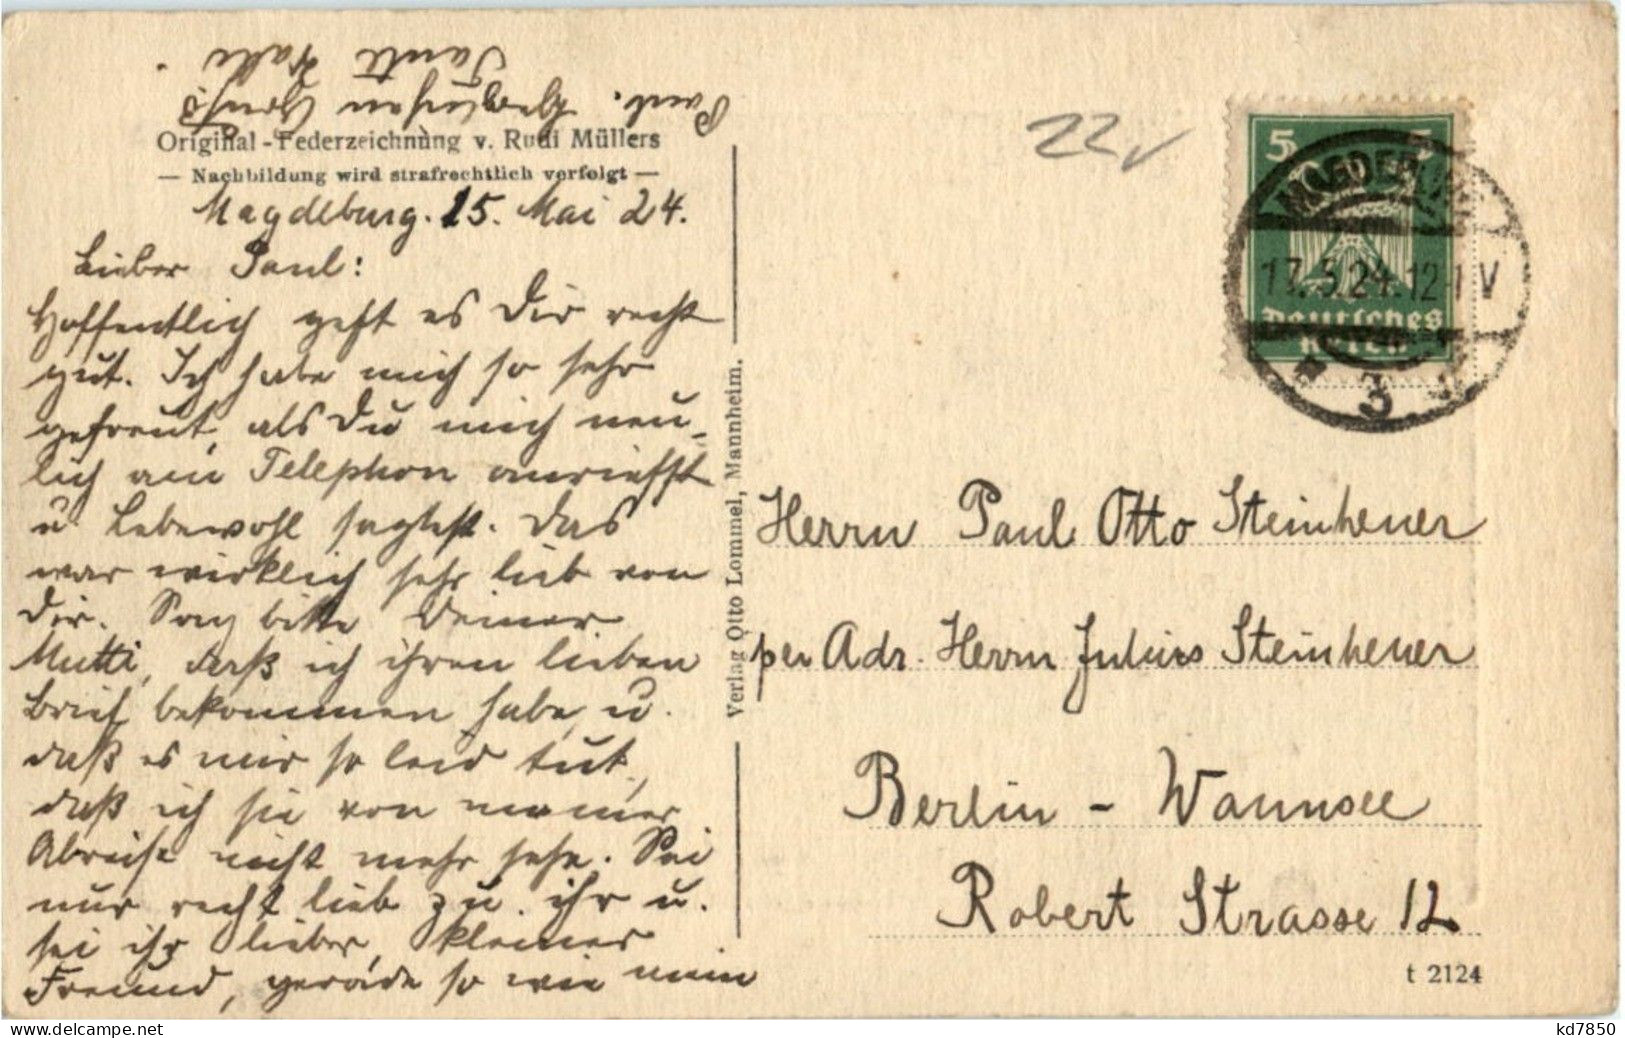 Original-Federzeichnung v. Rudi Müllers
— Nachbildung wird strafrechtlich verfolgt —
Magdeburg. 15. Mai 24.
Lieber Paul:
Hoffentlich geht es Dir recht
gut. Ich habe mich so sehr
gefreut, als Du mich neu-
lich am Telephon anriefst
u. Lebewohl sagtest. Das
war wirklich sehr lieb von
Dir. Sag bitte Deiner
Mutti, daß ich ihren lieben
Brief bekommen habe, u.
daß es mir so leid tut,
daß ich sie vor meiner
Abreise nicht mehr sehe. Sei
nur recht lieb zu ihr u.
sei ihr lieber, kleiner
Freund, gerade so wie mein
Paul. Herzlichen Gruß
Tante
Verlag Otto Lommel, Mannheim.
22
5 5
MAGDEBURG
17.5.24.12-1 V
Deutsches
Reich
3
Herrn Paul Otto Steinheuer
per Adr. Herrn Julius Steinheuer
Berlin - Wannsee
Robert Strasse 12
t 2124
kd7850